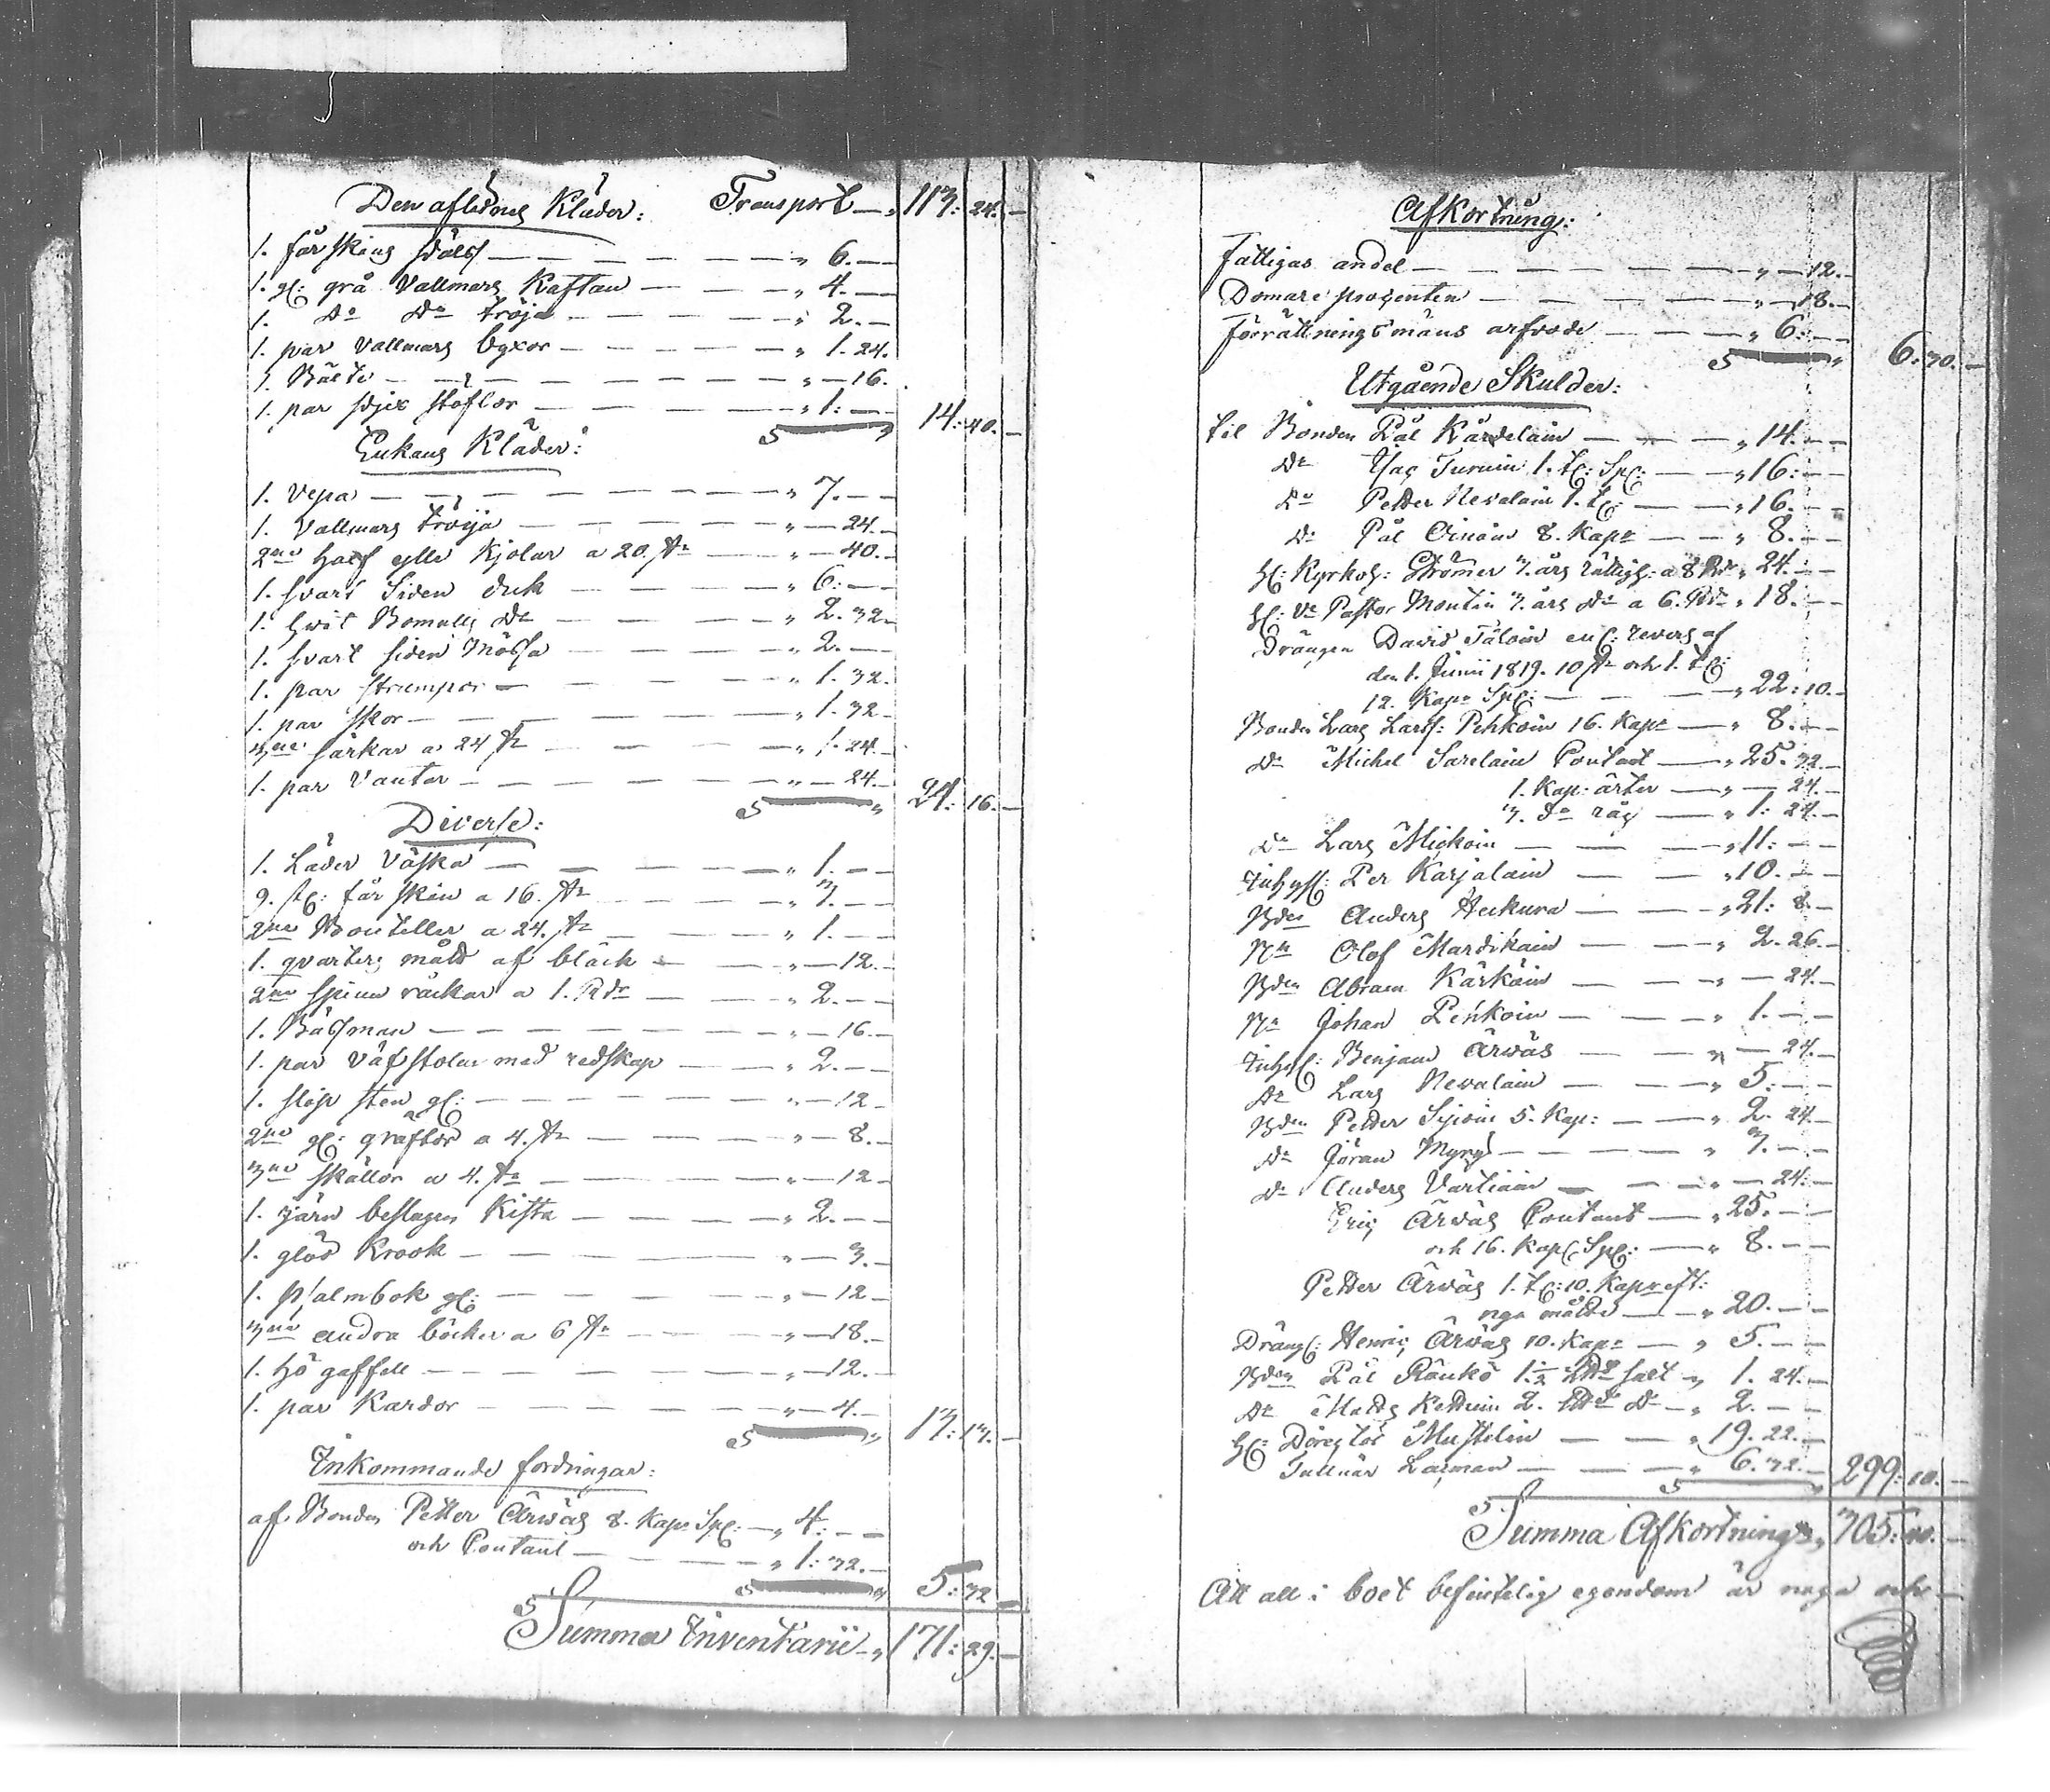 Den aflednes Kläder: Transport — " 113: 24. —
1. får skins fväls — " 6. —
1. gl: grå Vallmars Kaftan — " 4. —
1. Do Do tröja — " 2. —
1. par vallmars byxor — " 1. 24.
1. Bälte — " — 16.
1. par stöflor — " 1: — 14: 40. —
Enkans Kläder:
1. Vepa — " 7. —
1. Vallmars tröija — " — 24. —
2ne half ylle Kjolar a 20. — " — 40. —
1. svart Siden duk — " 6: —
1. hvit Bomulls Do — " 2. 32.
1. svart siden Mössa — " 2. —
1. par strumpor — " 1. 32.
1. par skor — " 1. 32.
3ne särkar a 24 — " 1. 24. —
1. par Vantar — " — 24. — 24: 16. —
Diverse:
1. Läder Väska — " 1. —
9. st: får skin a 16. — " 3. —
2ne Bouteller a 24. — " 1. —
1. qvarters mått af bläck — " — 12. —
2ne spinn råckar a 1. Rdr — " 2. —
1. Båssman — " — 16. —
1. par Väfstolar med redskap — " 2. —
1. slip sten gl: — " — 12 —
2ne gl: gräftor a 4. — " — 8. —
3ne skällor a 4. — " — 12 —
1. järn beslagen Kista — " 2. —
1. glöd Krook — " — 3. —
1. psalmbok gl: — " — 12 —
3ne andra böcker a 6 — " — 18. —
1. hö gaffell — " — 12. —
1. par Kardor — " — 4. — 13: 13. —
Inkommande fordringar:
af Bonden Petter Ärväs 8. Kapr Spl: — " 4: —
och Contant — " 1: 32. — 5: 32 —
Summa Inventarii — " 171: 29. —
Afkortning:
Fattigas andel — " — 12. —
Domare procenten — " — 18. —
Förrättningsmäns arfvode — " 6: — 6: 30. —
Utgående Skulder:
til Bonden Pål Kärdelain — " 14. —
Do Isac Turuin 1. t: Spl: — " 16: —
Do Petter Nevalain 1. t: — " 16. —
Do Pål Oinoin 8. Kapr — " 8. —
H: Kyrkoh: Strömer 3. års rättigh: a 8 Rdr " 24. —
H: Ve Pastor Montin 3. års Do a 6. Rdr " 18. —
Drängen David Tälöin enl: revers af
den 1. Junii 1819. 10 och 1. t:
12. Kapr Spl: — " 22: 10. —
Bonden Lars Larss: Pehkoin 16. Kapr — " 8. —
Do Michel Sarelain Contant — " 25. 32. —
1. Kap: ärter — " — 24. —
3. Do råg — " 1: 24. —
Do Lars Mickoin — " 11: —
Inhys: Per Karjalain — " 10. —
Bden Anders Heikura — " 21: 8. —
Olof Mardikain — " 2. 26. —
Bden Abram Kärkäin — " — 24. —
Johan Penkoin — " 1. —
Inhys: Benjam Ärväs — " — 24. —
Do Lars Nevalain — " 5: —
Bden Petter Sijvoin 5. Kap: — " 2. 24. —
Do Jöran Myry — " 3. —
Do Anders Vartiain — " — 24: —
Eric Ärväs Contant — " 25. —
och 16. Kapl: Spl: — " 8. —
Petter Ärväs 1. t: 10. Kapr eft:
nya måttet — " 20. —
Dräng: Henric Ärväs 10. Kapr — " 5. —
Bden Pål Ränkö 1 1/2 salt — " 1. 24. —
Do Matts Kettuin 2. Do — " 2. —
H: Director Mustelin — " 19. 22. —
Tullnär Lagman — " 6. 32. — 299: 10. —
Summa Afkortning " 305: 40. —
Att all i boet befintelig egendom är noga och